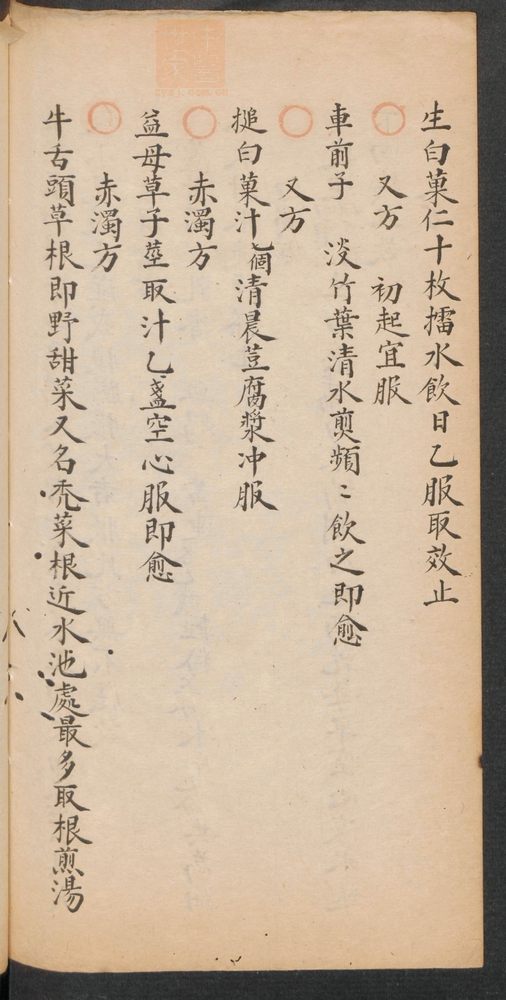 生白菓仁十枚擂水飲日乙服取效止
又方 初起宜服
車前子 淡竹葉清水煎頻〻飲之即愈
又方
搥白菓汁乙個清晨荳腐漿冲服
赤濁方
益母草子莖取汁乙盞空心服即愈
赤濁方
牛舌頭草根即野甜菜又名禿菜根近水池處最多取根煎湯